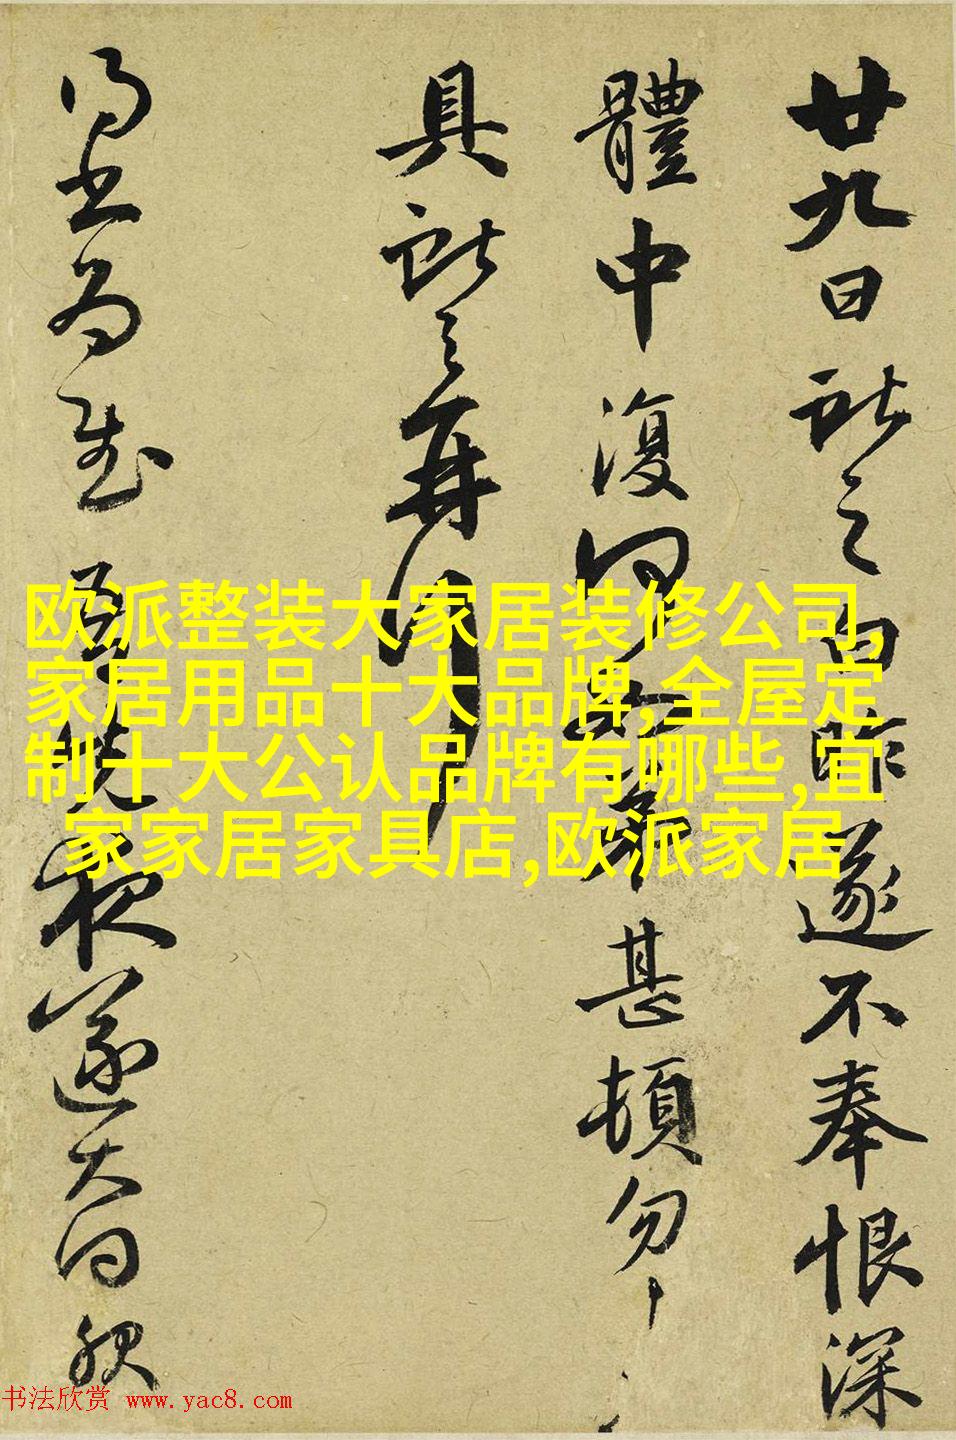 廿九日獻之白昨遂不奉恨深
體中復何如弟甚頓勿
具獻之再拜
夜遂大
欧派整装大家居装修公司,
家居用品十大品牌,全屋定
制十大公认品牌有哪些,宜
家家居家具店,欧派家居
书法欣赏 www.yac8.com